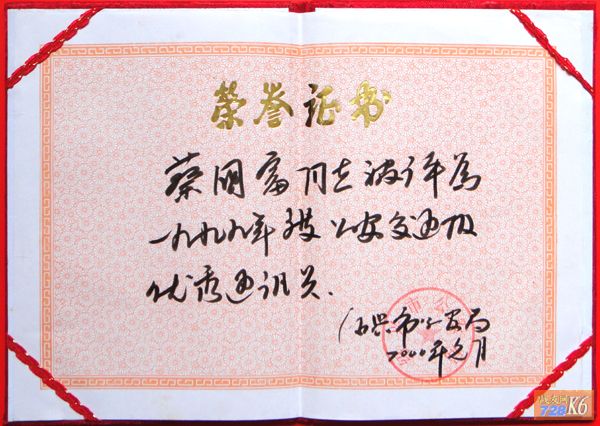 荣誉证书
蔡国富同志被评为
一九九九年度公安交通报
优秀通讯员.
兴市公安局
2000年元月
市公
728 K6